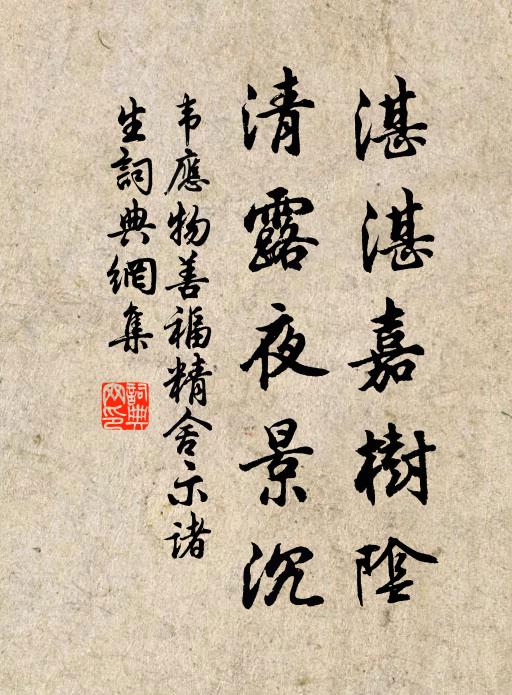 湛湛嘉樹陰
清露夜景沉
韦應物善福精舍示諸
生詞典網集
詞典網印